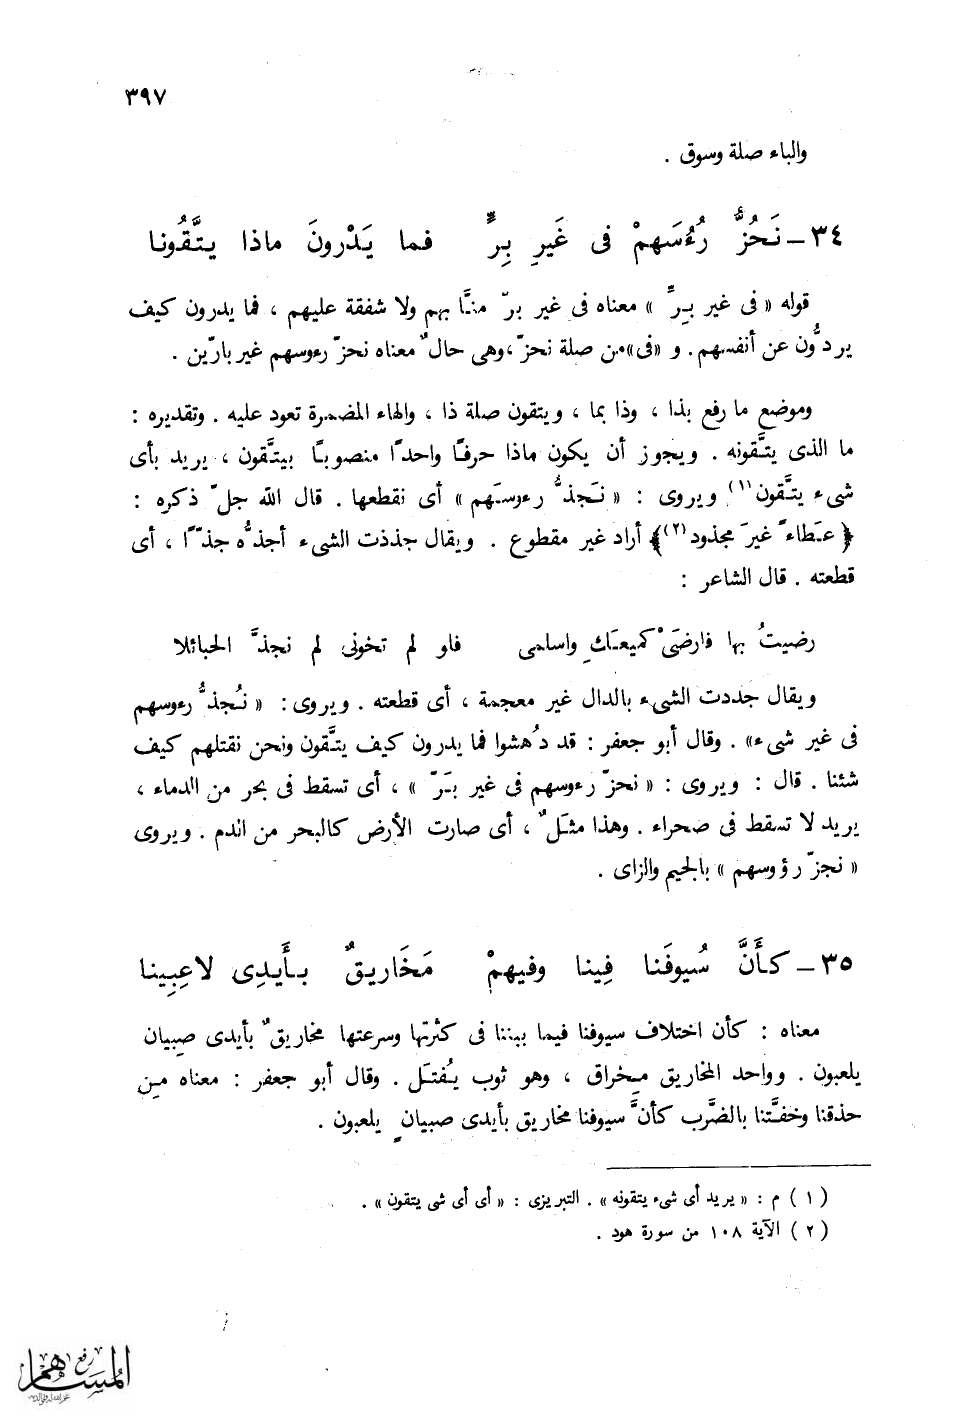 ٣٩٧
والباء صلة وسوق .
٣٤ – نَحُزُّ رُءُسَهمْ فى غَيرِ بِرٍّ فما يَدْرونَ ماذا يتَّقُونا
قوله « فى غير بِرٍّ » معناه فى غير برّ منَّا بهم ولا شفقة عليهم ، فما يدرون كيف
يردُّون عن أنفسهم . و « فى » من صلة نحزّ ، وهى حالٌ معناه نحزّ رءوسهم غير بارّين .
وموضع ما رفع بذا ، وذا بما ، ويتقون صلة ذا ، والهاء المضمرة تعود عليه . وتقديره :
ما الذى يتَّقونه . ويجوز أن يكون ماذا حرفًا واحدًا منصوبًا بيتَّقون ، يريد بأى
شىء يتَّقون(١) ويروى : « نَجذُّ رءوسَهم » أى نقطعها . قال الله جلّ ذكره :
﴿ عَطاءً غيرَ مجذود(٢)﴾ أراد غير مقطوع . ويقال جذذت الشىء أجذُّه جذّا ، أى
قطعته . قال الشاعر :
رضيتُ بها فارضَىْ كميعَكِ واسلمى فلو لم تخونى لم نجذَّ الحبائلا
ويقال جددت الشىء بالدال غير معجمة ، أى قطعته . ويروى : « نُجذُّ رءوسهم
فى غير شىء » . وقال أبو جعفر : قد دُهشوا فما يدرون كيف يتَّقون ونحن نقتلهم كيف
شئنا . قال : ويروى : « نحزّ رءوسهم فى غير بَرّ » ، أى تسقط فى بحر من الدماء ،
يريد لا تسقط فى صحراء . وهذا مثَلٌ ، أى صارت الأرض كالبحر من الدم . ويروى
« نجزّ رؤوسهم » بالجيم والزاى .
٣٥ – كأَنَّ سُيوفَنا فِينا وفيهمْ مَخَاريقٌ بأَيدِى لاعِبِينا
معناه : كأن اختلاف سيوفنا فيما بيننا فى كثرتها وسرعتها مخاريقٌ بأيدى صبيان
يلعبون . وواحد المخاريق مِخراق ، وهو ثوب يُفتَل . وقال أبو جعفر : معناه مِن
حذقنا وخفَّتنا بالضَّرب كأنَّ سيوفنا مخاريق بأيدى صبيانٍ يلعبون .
( ١ ) م : « يريد أى شىء يتقونه » . التبريزى : « أى أى شى يتقون » .
( ٢ ) الآية ١٠٨ من سورة هود .
رفع
المساهم